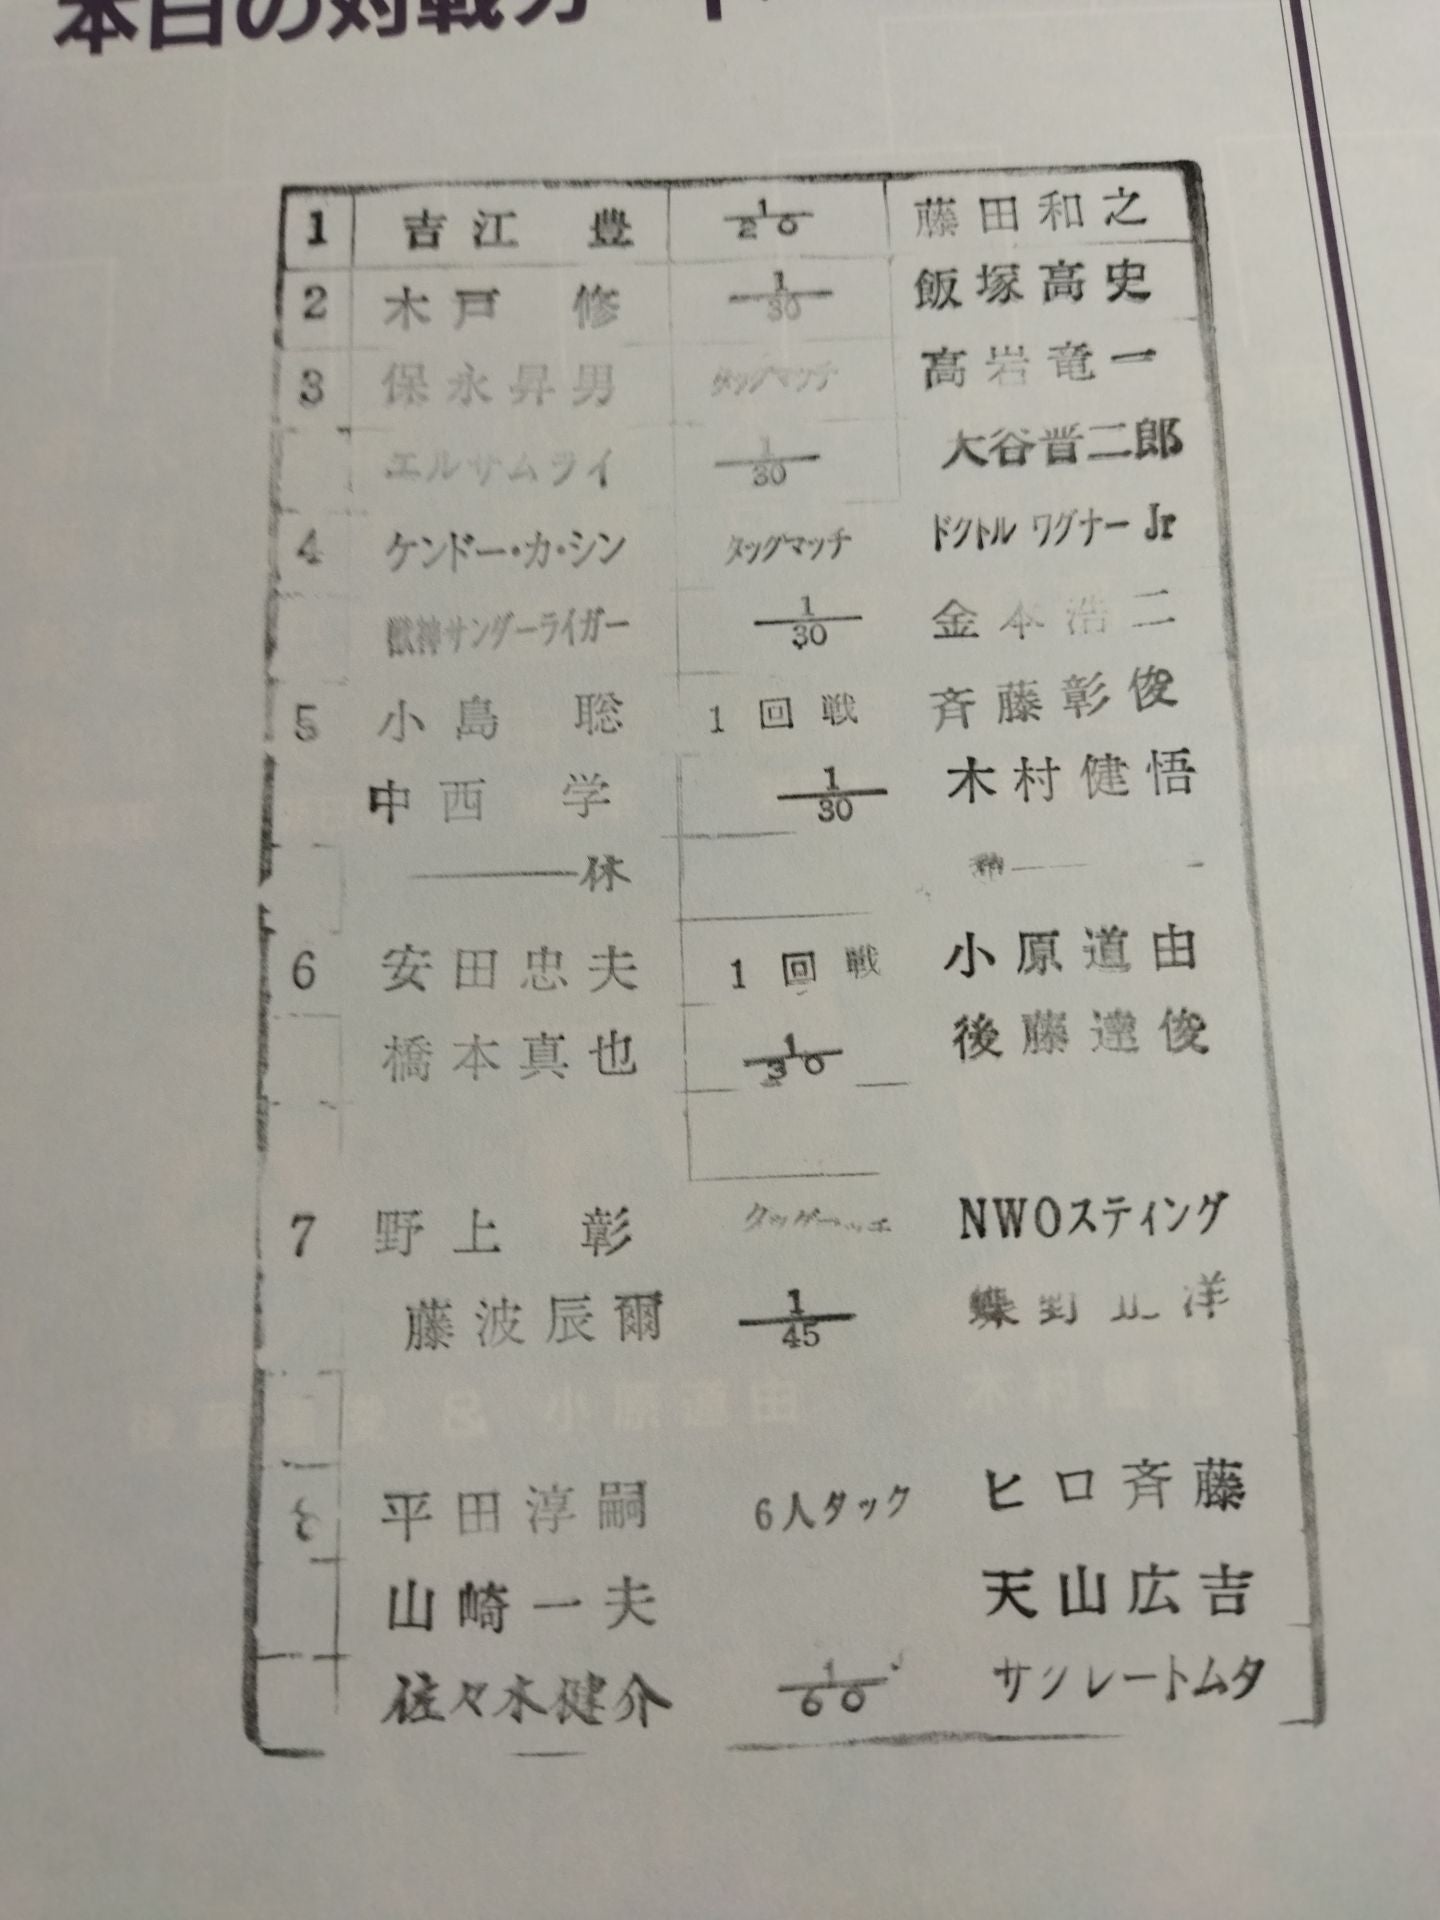 本日の対戦カード
1 吉江 豊 1/20 藤田和之
2 木戸 修 1/30 飯塚高史
3 保永昇男 タッグマッチ 高岩竜一
エルサムライ 1/30 大谷晋二郎
4 ケンドー・カ・シン タッグマッチ ドクトル ワグナー Jr
獣神サンダーライガー 1/30 金本浩二
5 小島 聡 1回戦 斉藤彰俊
中西 学 1/30 木村健悟
休 憩
6 安田忠夫 1回戦 小原道由
橋本真也 1/30 後藤達俊
7 野上 彰 タッグマッチ NWOスティング
藤波辰爾 1/45 蝶野正洋
8 平田淳嗣 6人タッグ ヒロ斉藤
山崎一夫 天山広吉
佐々木健介 1/60 グレートムタ